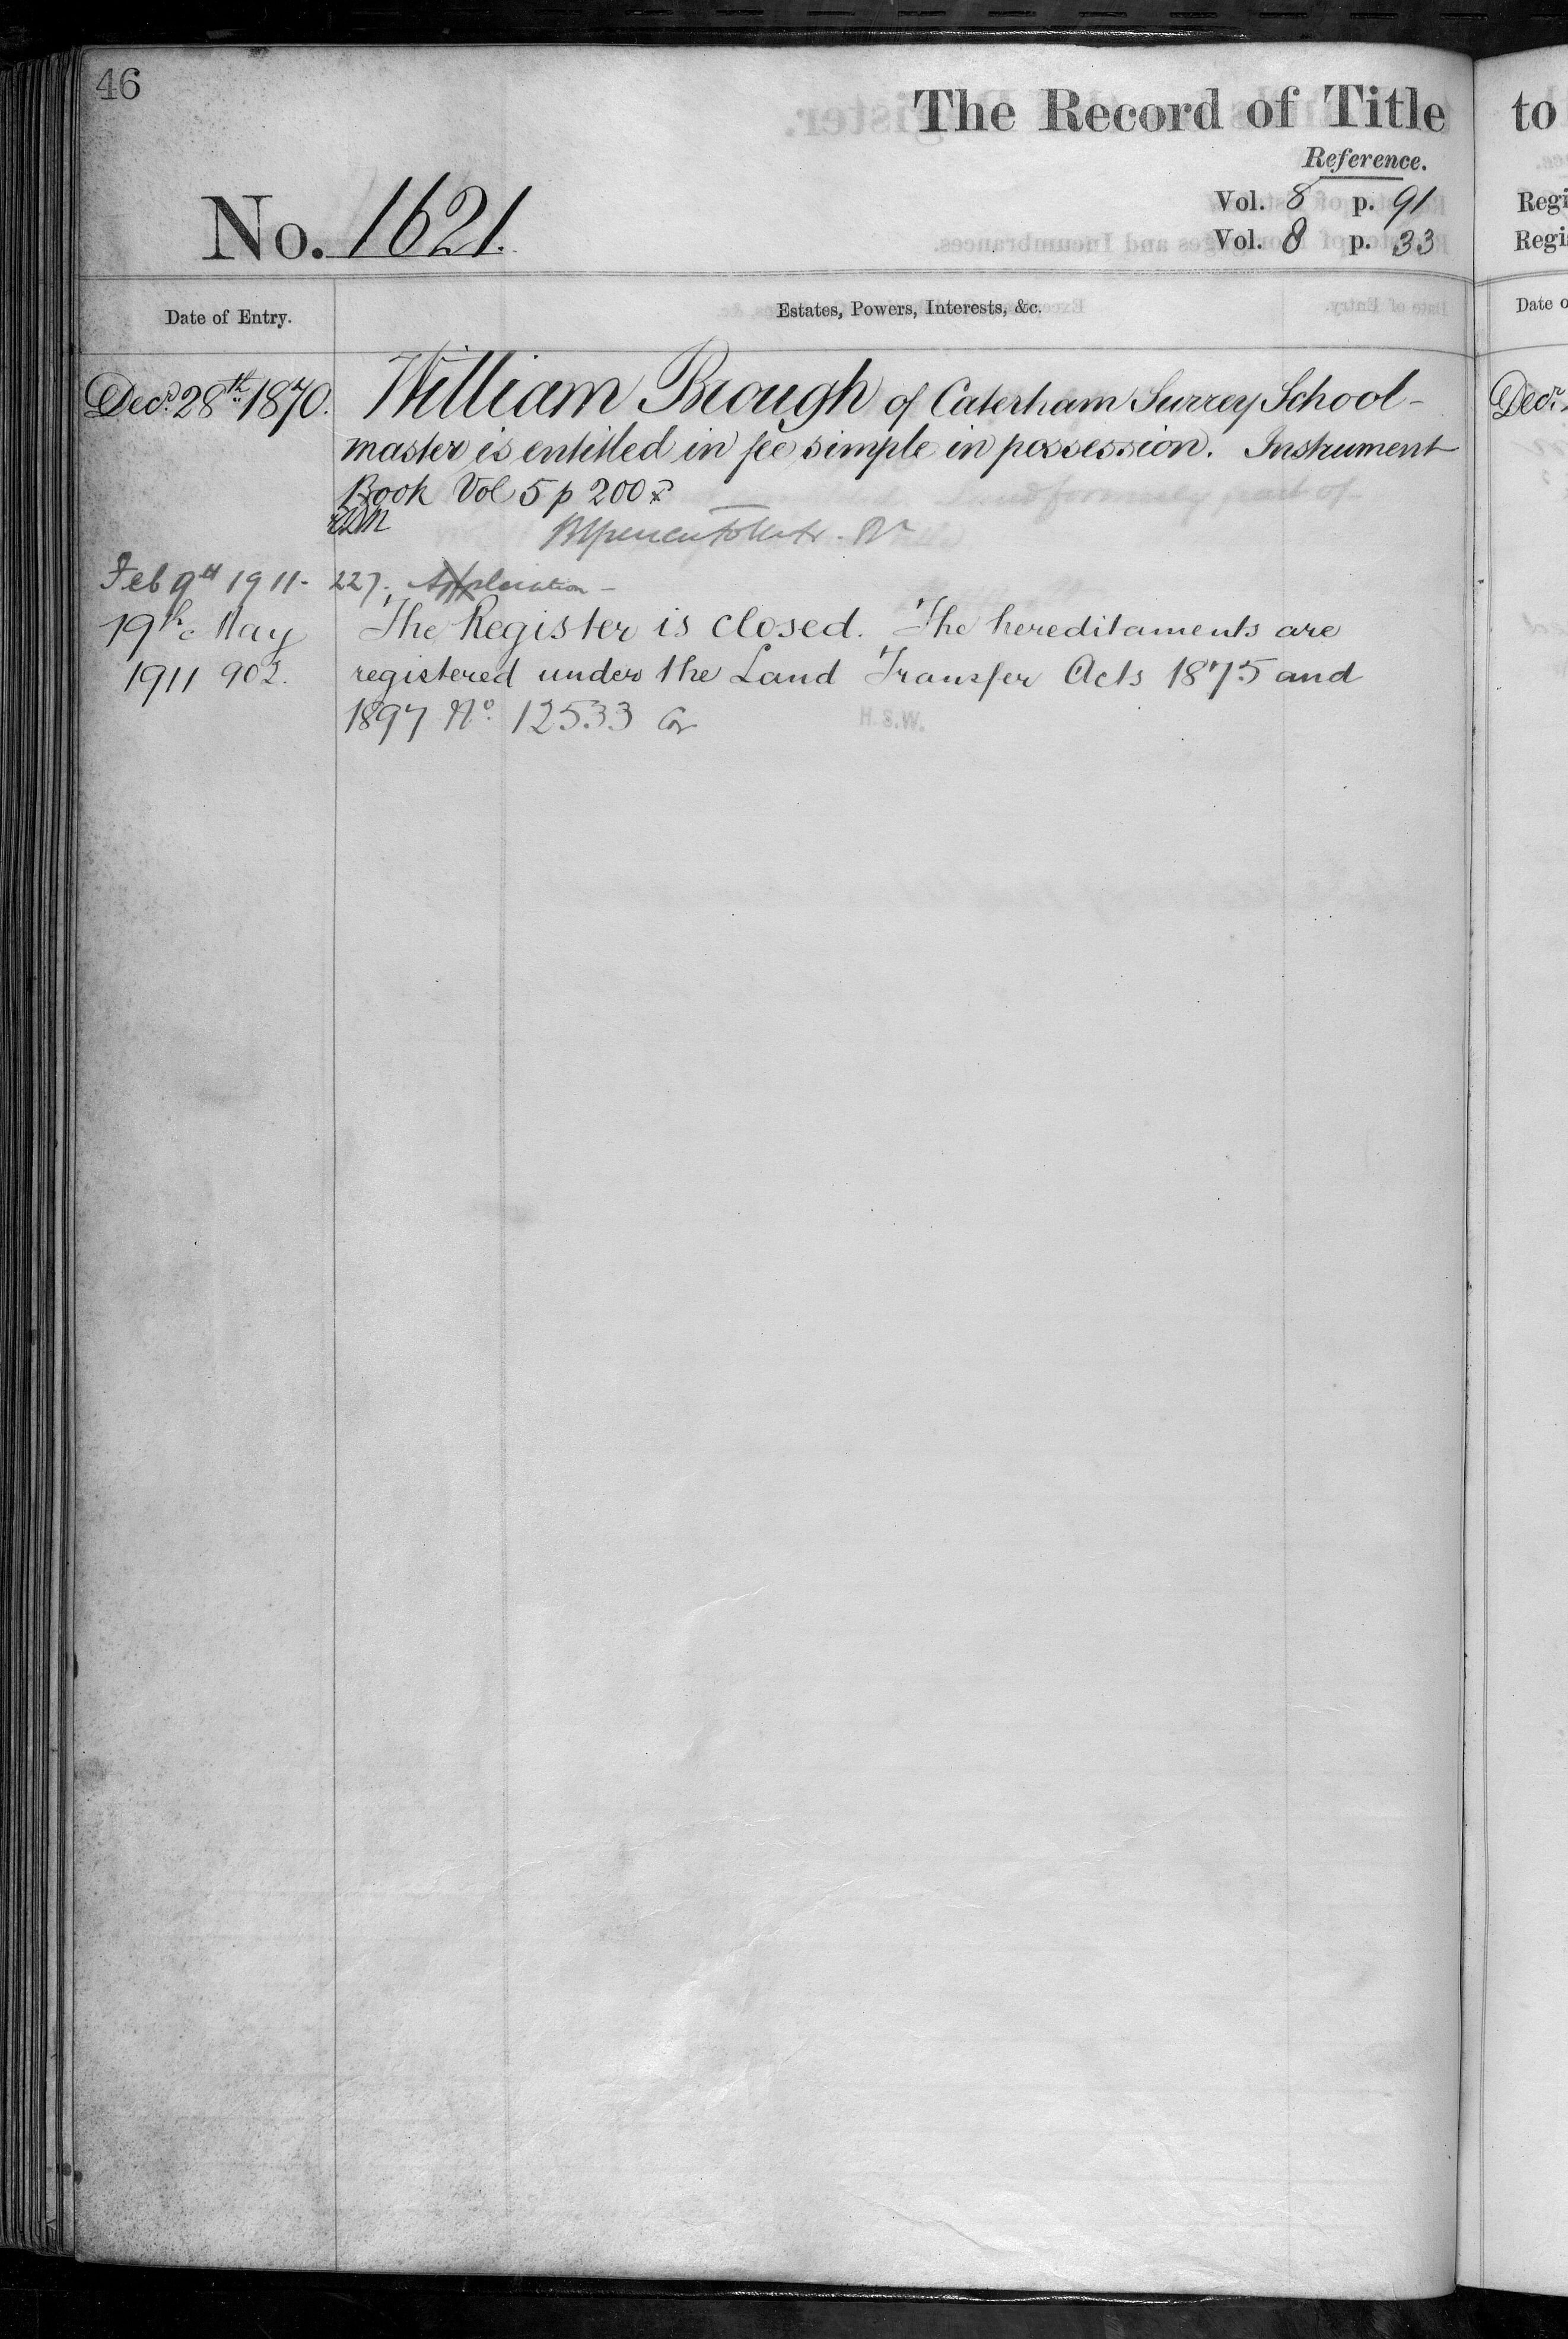 46
The Record of Title
to
Reference.
Vol. 8 p. 91
Regi
No. 1621.
Vol. 8 p. 33
Regi
Date of Entry.
Estates, Powers, Interests, &c.
Date o
Decr. 28th. 1870.
William Brough of Caterham Surrey School-
Decr.
master is entitled in fee simple in possession. Instrument
Book Vol 5 p 200
Feb 9th 1911- 227. Application -
19th May
The Register is closed. The hereditaments are
1911 902.
registered under the Land Transfer Acts 1875 and
1897 No. 12533
H.S.W.